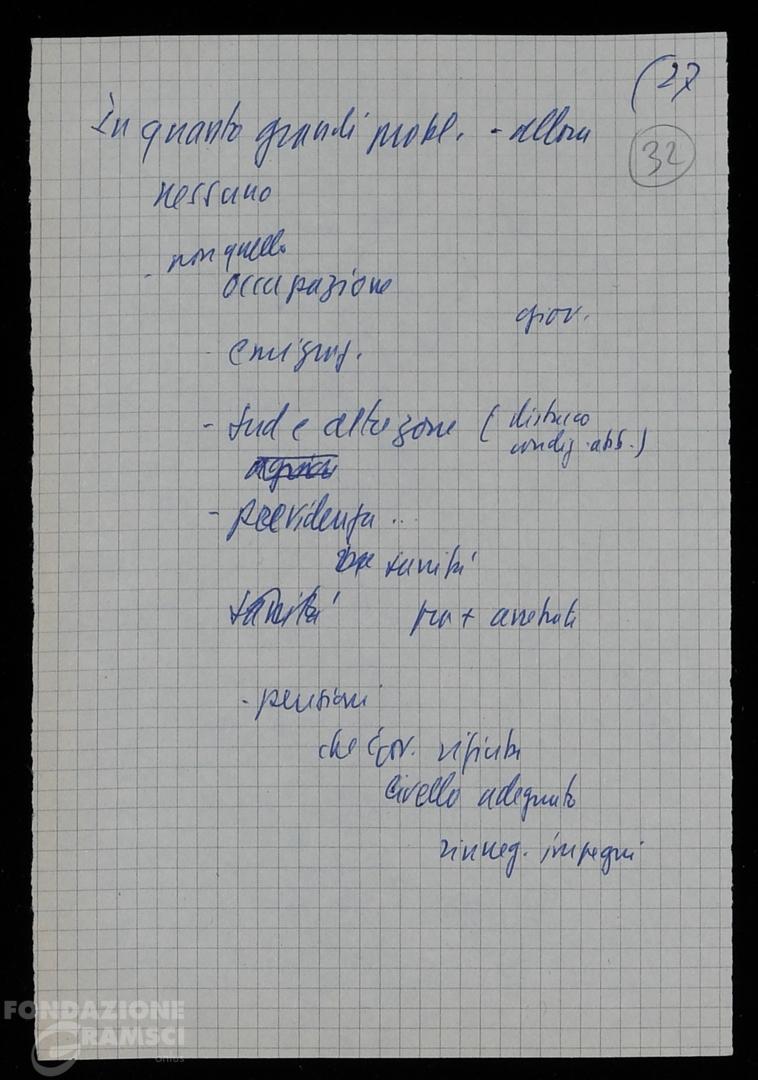 (27
In quanto grandi probl. - allora
32
nessuno
- non quello
occupazione
giov.
- emigraz.
- Sud e altre zone (distacco
condiz. abb.)
- previdenza ..
sanità
sanità più + arretrati
- pensioni
che Gov. rifiuta
livello adeguato
rinneg. impegni
FONDAZIONE
GRAMSCI
onlus